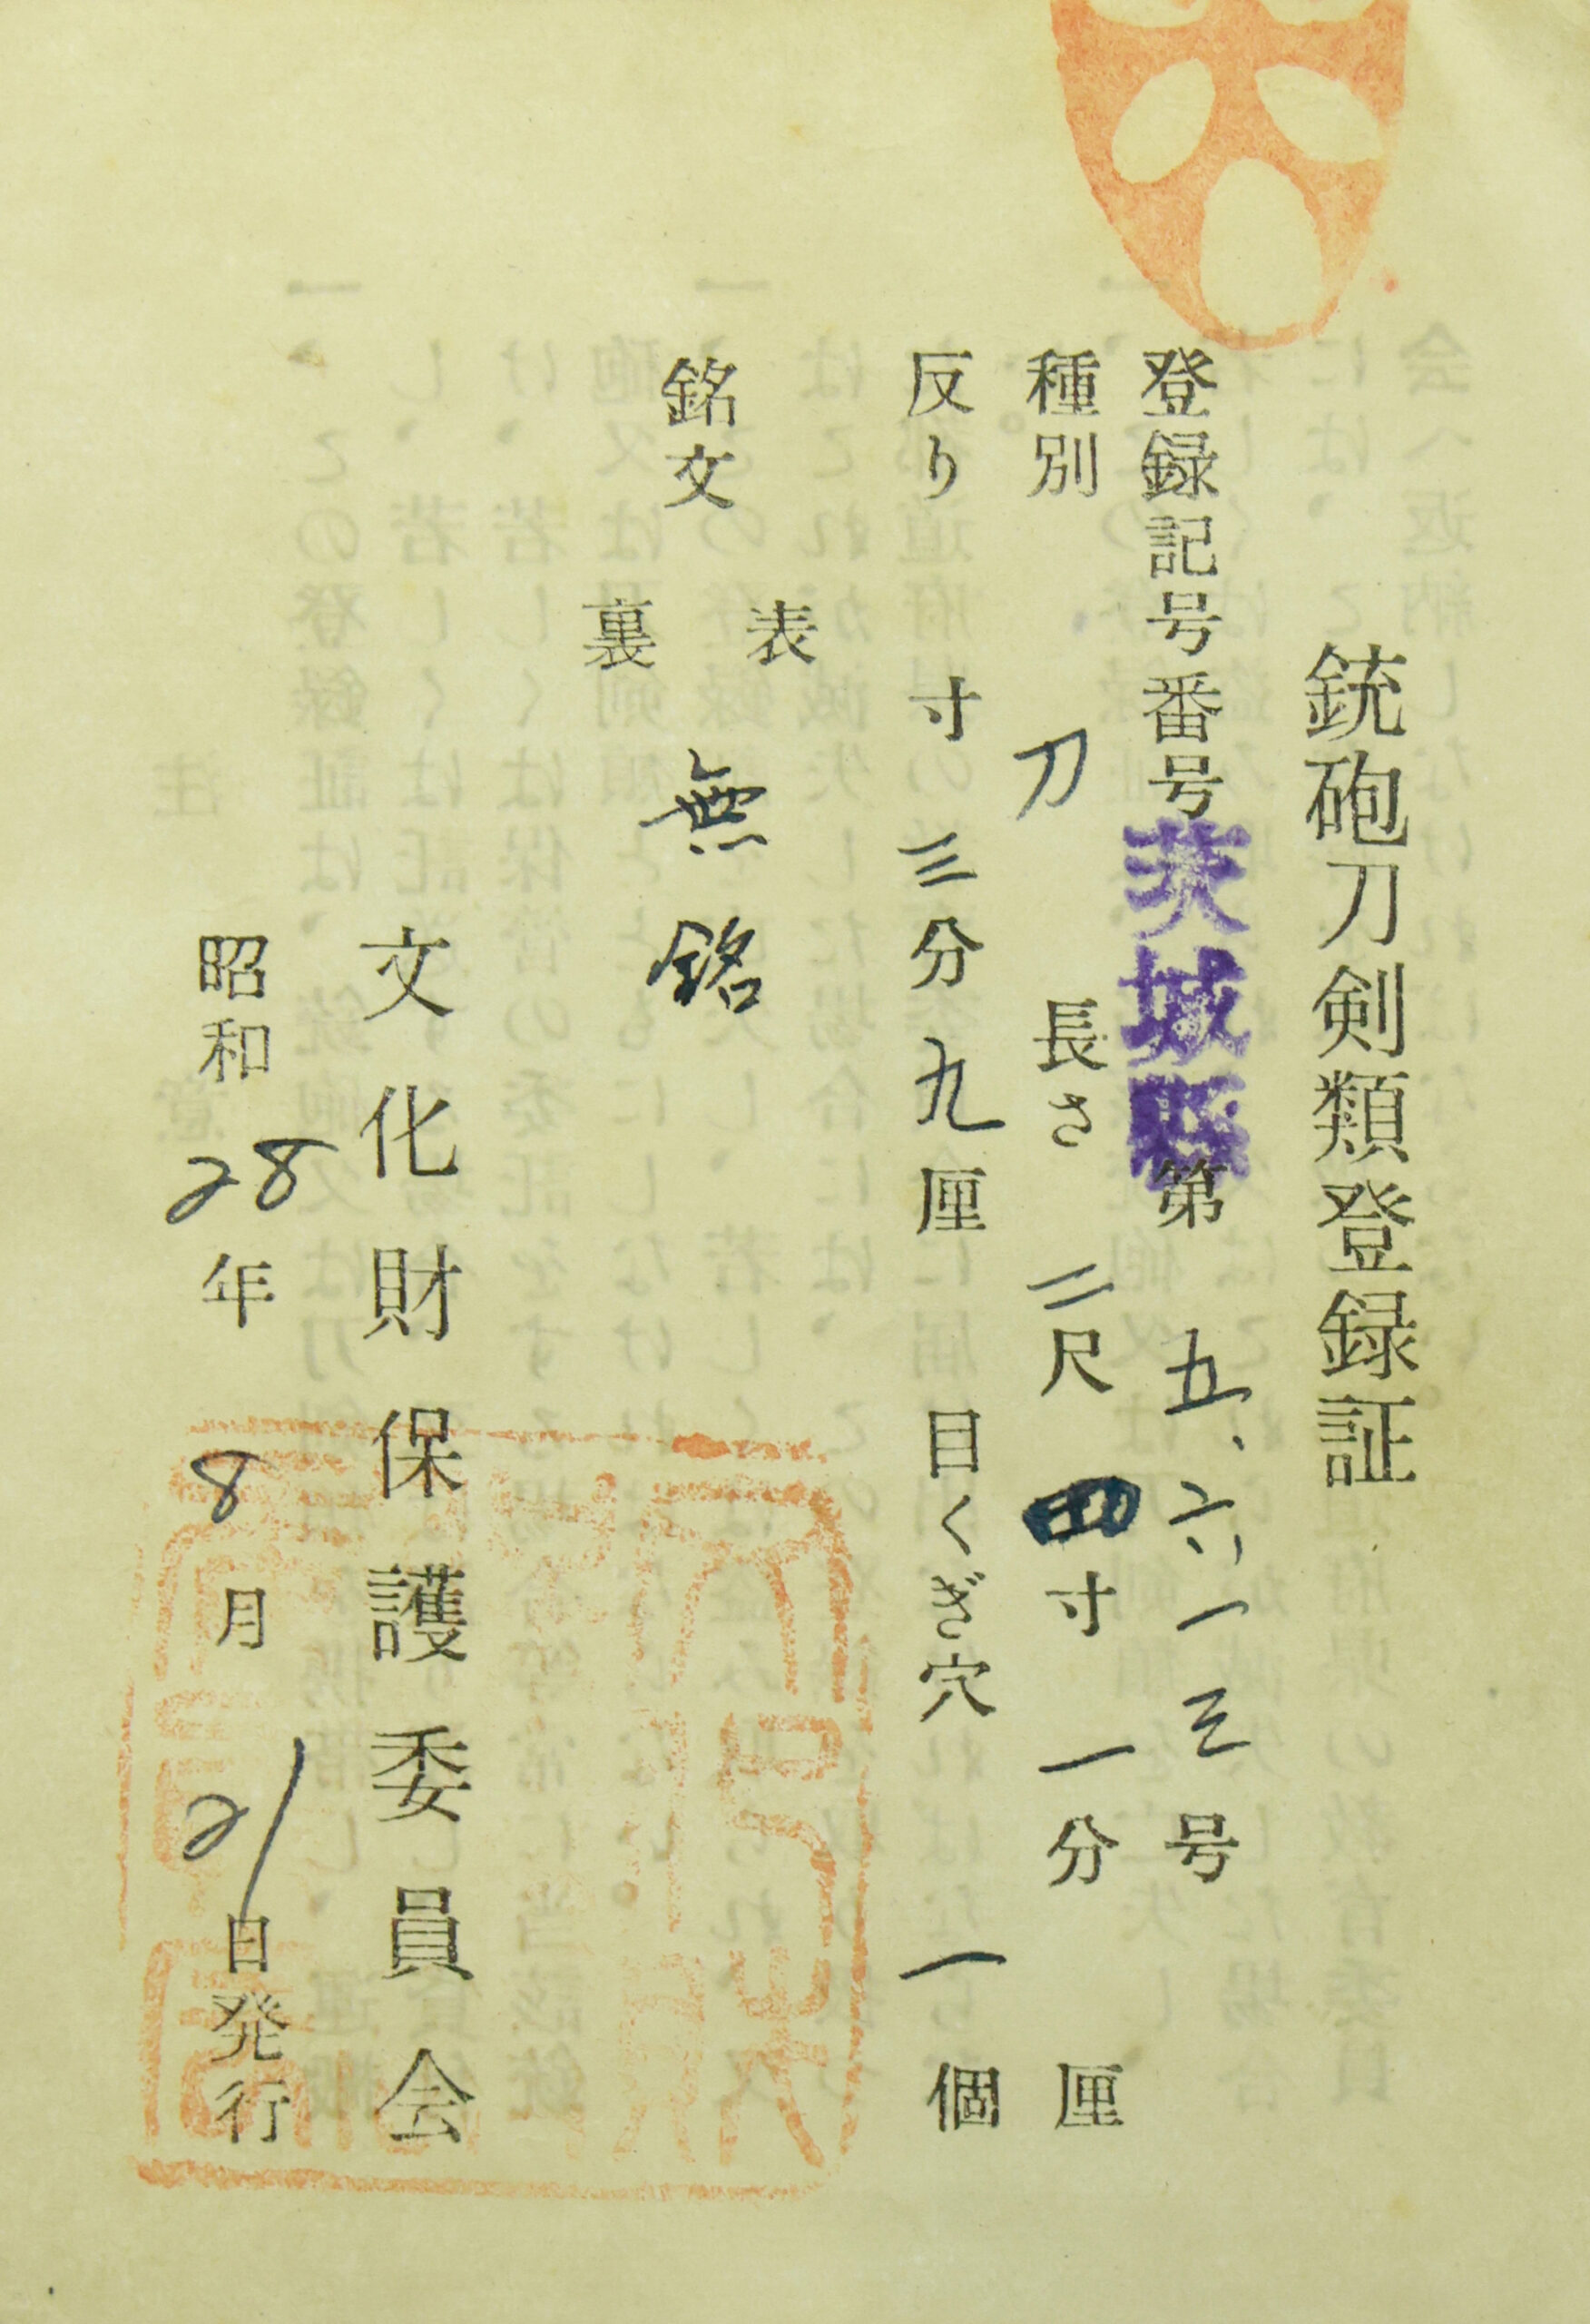 銃砲刀剣類登録証
登録記号番号茨城縣第 五、六一三号
種別 刀 長さ 二尺四寸一分 厘
反り 寸三分九厘 目くぎ穴 一個
表
銘文 無銘
裏
文化財保護委員会
昭和28年8月21日発行